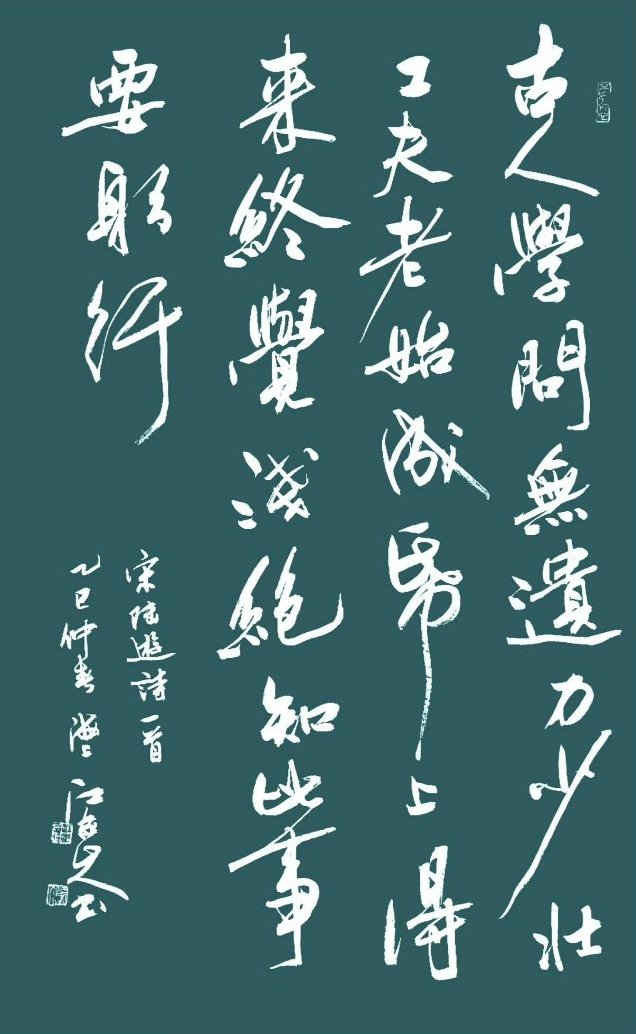 古人學問無遺力少壯
工夫老始成帋上得
来終覺淺絶知此事
要躬行
宋陸遊詩一首
乙巳仲春江人书